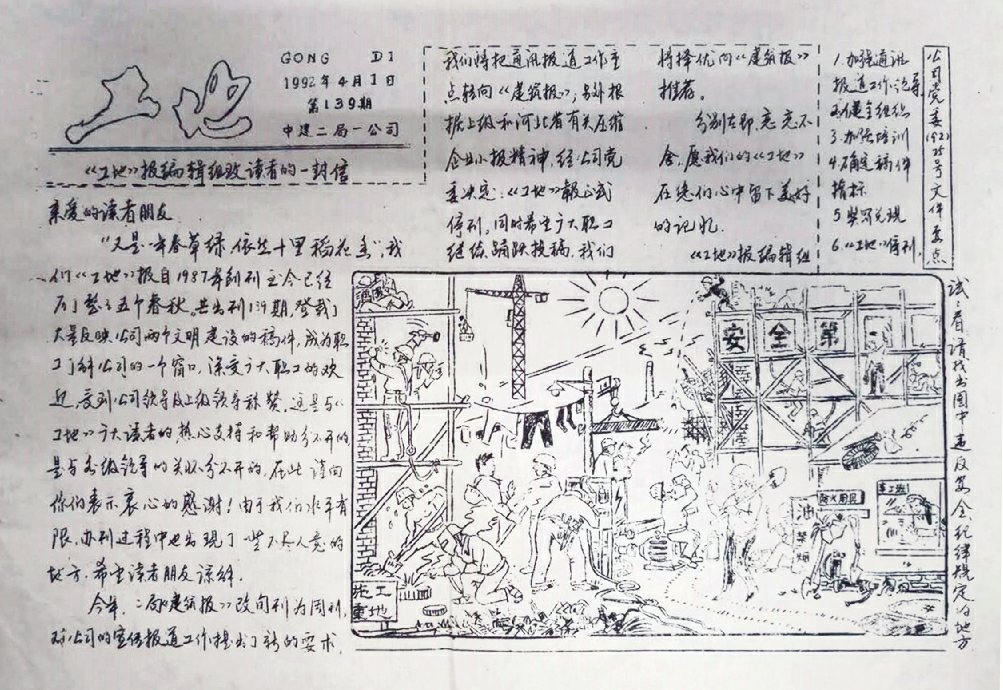 工地
GONG DI
1992年4月1日
第139期
中建二局一公司
《工地》报编辑组致读者的一封信
亲爱的读者朋友
“又是一年春草绿,依然十里稻花香”,我
们《工地》报自1987年创刊至今已经
历了整整五个春秋。共出刊139期,登载了
大量反映公司两个文明建设的稿件,成为职
工了解公司的一个窗口,深受广大职工的欢
迎,受到公司领导及上级领导称赞,这是与《
工地》广大读者的热心支持和帮助分不开的
是与各级领导的关怀分不开的,在此谨向
你们表示衷心的感谢!由于我们水平有
限,办刊过程中也出现了一些不尽人意的
地方,希望读者朋友谅解。
今年,二局《建筑报》改旬刊为周刊,
对公司的宣传报道工作提出了新的要求
我们将把通讯报道工作重
点转向《建筑报》,另外根
据上级和河北省有关压缩
企业小报精神,经公司党
委决定:《工地》报正式
停刊,同时希望广大职工
继续踊跃投稿,我们
将择优向《建筑报》
推荐。
分别在即,恋恋不
舍,愿我们的《工地》
在您们心中留下美好
的记忆。
《工地》报编辑组
公司党委(92)25号文件要点
1.加强通讯
报道工作领导
2.健全组织
3.加强培训
4.确定稿件
指标
5.奖罚兑现
6.《工地》停刊
试一看:请找出图中违反安全纪律规定的地方
安全第一
施工
重地
油
禁烟
防火用具